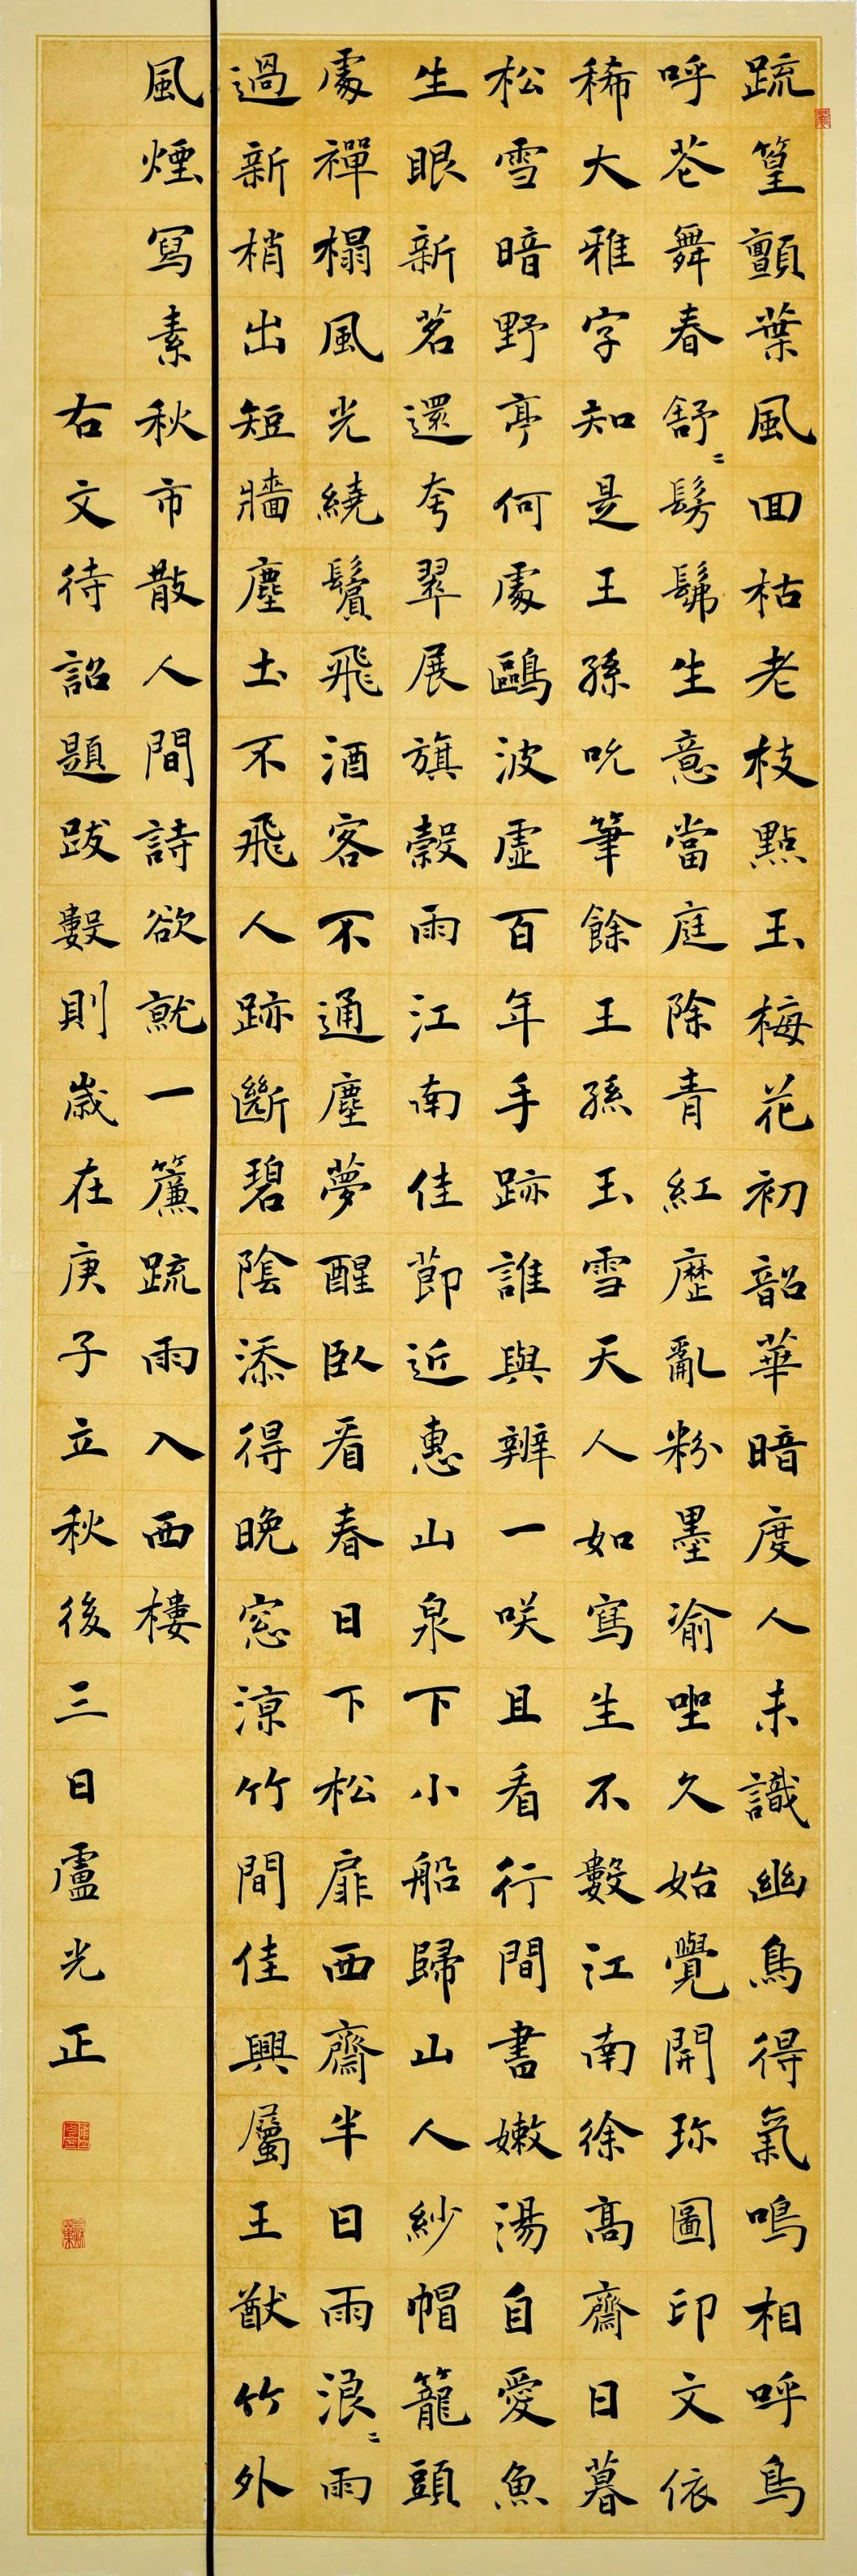 疏篁顫葉風回枯老枝點玉梅花初韶華暗度人未識幽鳥得氣鳴相呼鳥
呼芲舞春舒〻髣髴生意當庭除青紅歷亂粉墨渝坐久始覺開珎圖印文依
稀大雅字知是王孫吮筆餘王孫玉雪天人如寫生不數江南徐高齋日暮
松雪暗野亭何處鷗波虛百年手跡誰與辨一咲且看行間書嫩湯自愛魚
生眼新茗還夸翠展旗穀雨江南佳節近惠山泉下小船歸山人紗帽籠頭
處禪榻風光繞鬢飛酒客不通塵夢醒臥看春日下松扉西齋半日雨浪〻雨
過新梢出短牆塵土不飛人跡斷碧陰添得晚窓涼竹間佳興屬王猷竹外
風煙寫素秋市散人間詩欲就一簾疏雨入西樓
右文待詔題跋數則歲在庚子立秋後三日盧光正